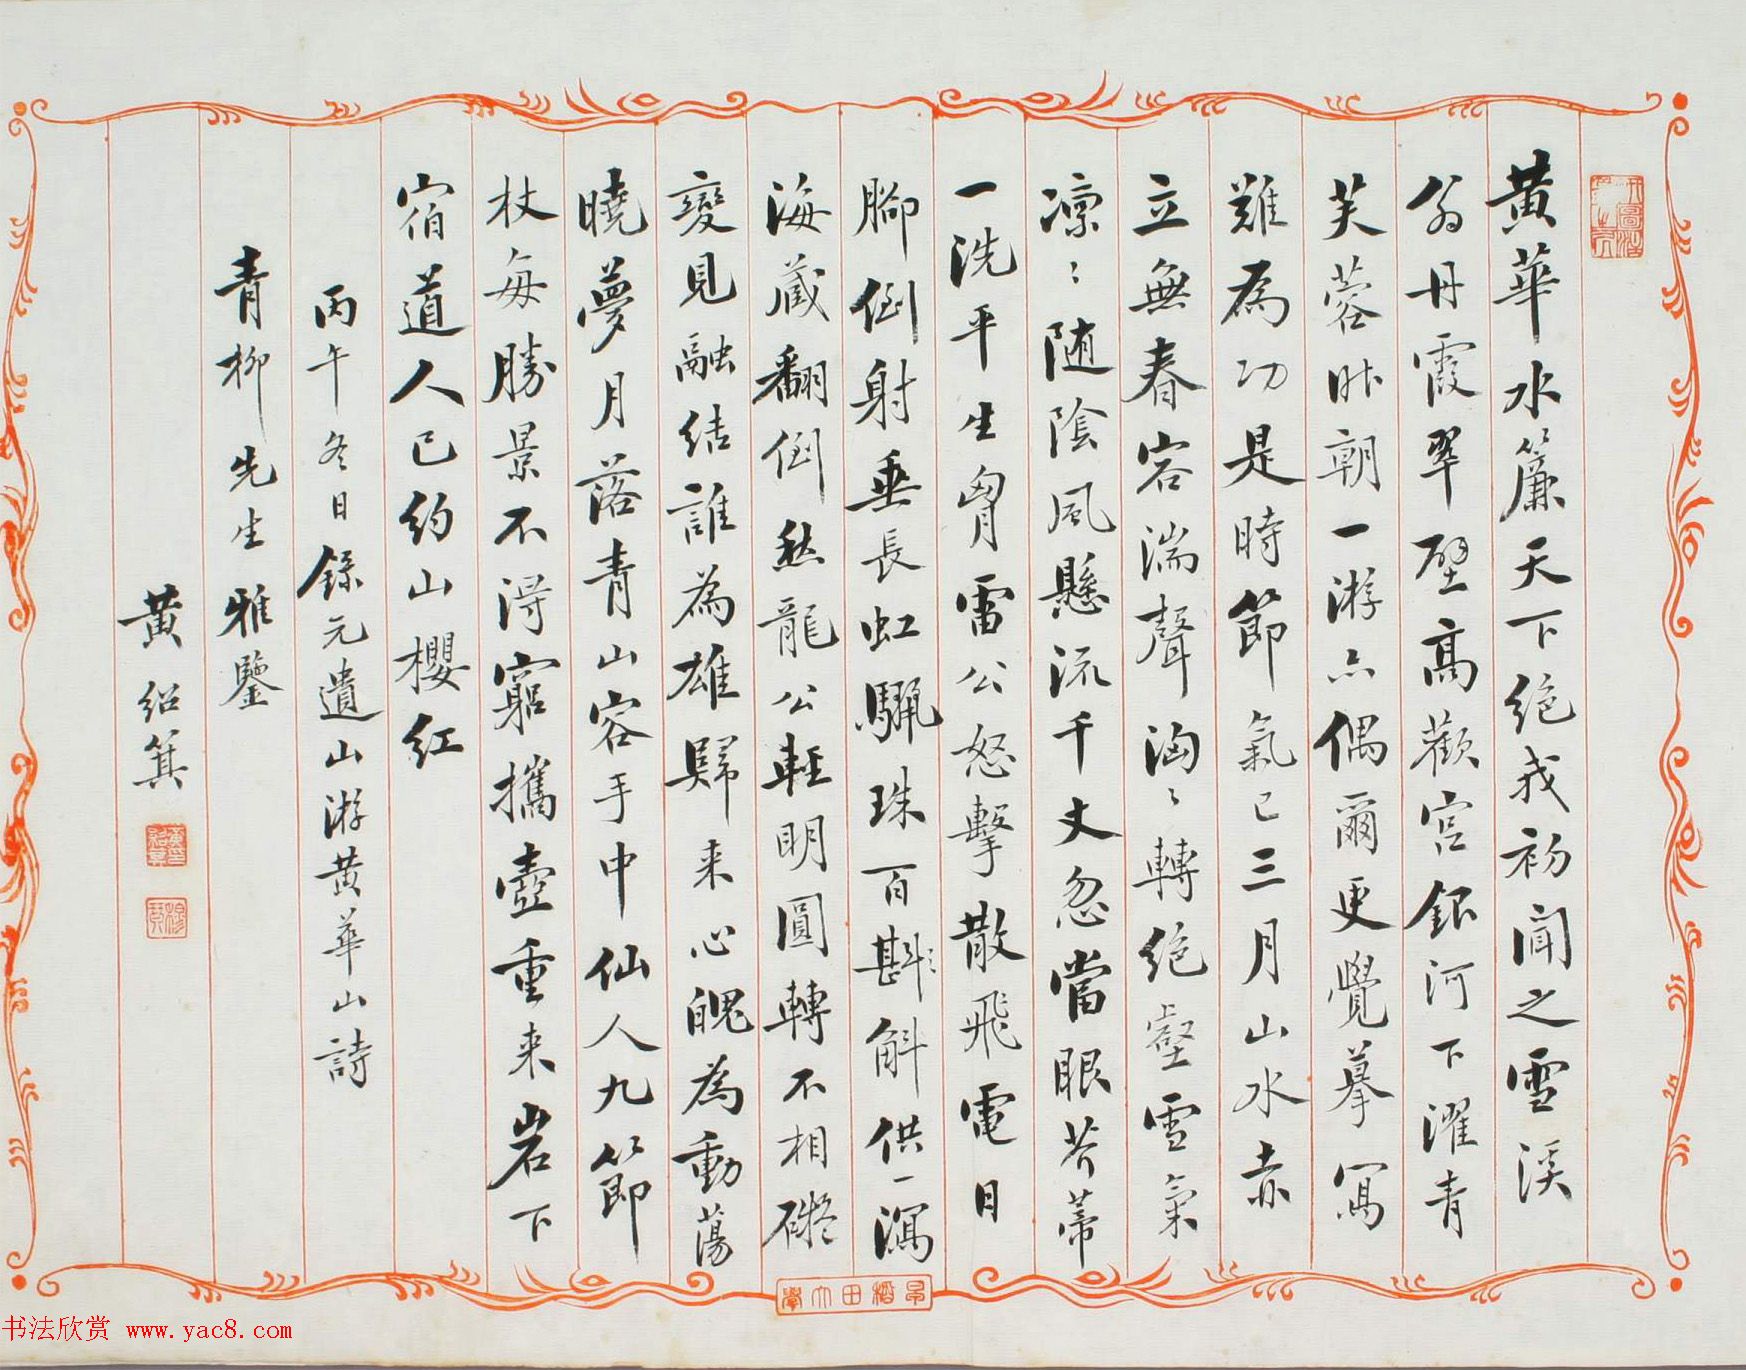 黃華水簾天下絕我初聞之雪溪
翁丹霞翠壁高歡宮銀河下濯青
芙蓉昨朝一游亦偶爾更覺摹寫
難為功是時節氣已三月山水赤
立無春容湍聲洶〻轉絕壑雪氣
凜〻隨陰風懸流千丈忽當眼芥蒂
一洗平生胷雷公怒擊散飛電日
腳倒射垂長虹驪珠百斛供一瀉
海藏翻倒愁龍公輕明圓轉不相礙
變見融結誰為雄歸来心魄為動蕩
曉夢月落青山容手中仙人九節
杖每勝景不得窮攜壺重来岩下
宿道人已約山櫻紅
丙午冬日錄元遺山游黃華山詩
青柳先生雅鑒
黃紹箕
書法欣赏 www.yac8.com